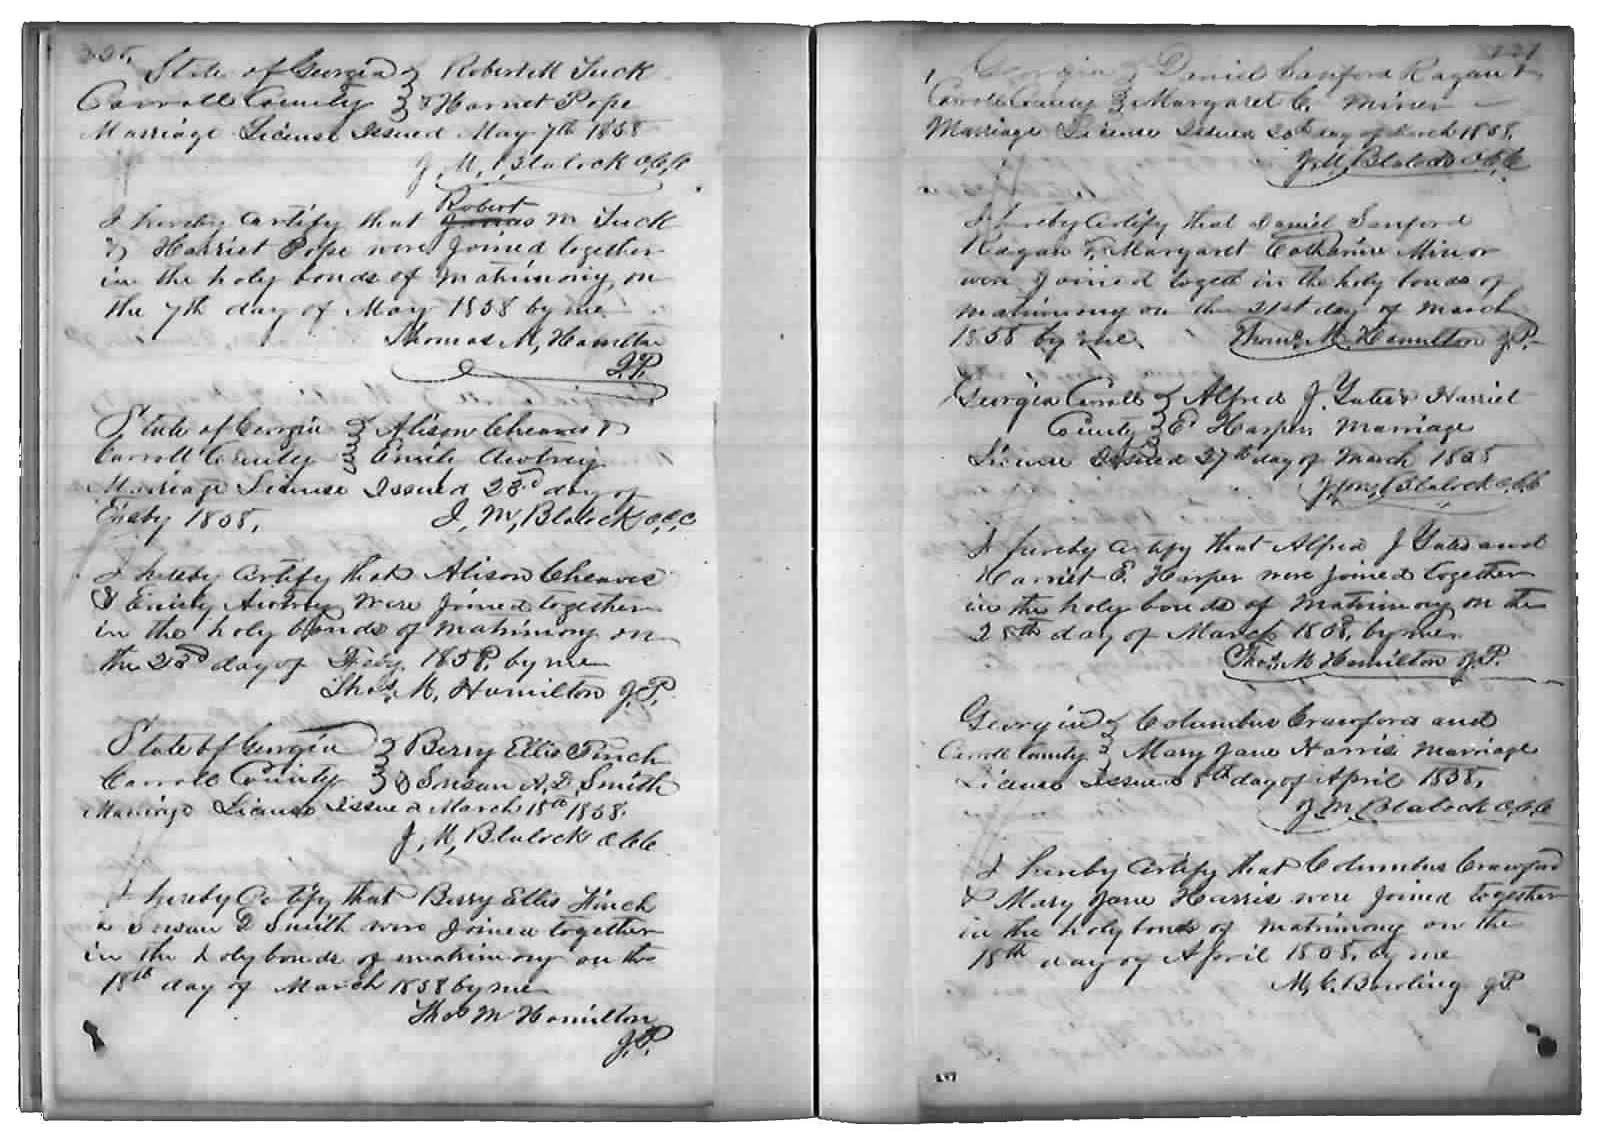 State of Georgia } Robert M Tuck
Carroll County } & Harriet Pope
Marriage License Issued May 7th 1858
J. M. Blalock C.C.O
Robert
I hereby certify that James M Tuck
& Harriet Pope were Joined together
in the holy bonds of Matrimony on
the 7th day of May 1858 by me
Thomas M. Hamilton
J.P.
State of Georgia } Alison Cheaves &
Carroll County } Emily Awtrey
Marriage License Issued 23rd day of
Feby 1858. J. M. Blalock C.C.O
I hereby certify that Alison Cheaves
& Emily Awtrey were Joined together
in the holy bonds of matrimony on
the 23rd day of Feby. 1858. by me
Thos. M. Hamilton J.P.
State of Georgia } Berry Ellis Finch
Carroll County } & Susan A. D. Smith
Marriage License Issued March 18th 1858.
J. M. Blalock C.C.O
I hereby Certify that Berry Ellis Finch
& Susan D Smith were Joined together
in the holy bonds of matrimony on the
18th day of March 1858 by me
Thos M Hamilton
J.P.
Georgia } Daniel Sanford Ragan &
Carroll County } Margaret C. Miner
Marriage License Issued 20th day of March 1858.
J. M. Blalock C.C.O
I hereby certify that Daniel Sanford
Ragan & Margaret Catharine Minor
were Joined togeth in the holy bonds of
matrimony on the 21st day of March
1858 by me. Thoms. M. Hamilton J.P.
Georgia Carroll } Alfred J. Yates & Harriet
County } E. Harper. Marriage
License Issued 27th day of March 1858
J. M. Blalock C.C.O
I hereby certify that Alfred J Yates and
Harriet E. Harper were Joined together
in the holy bonds of Matrimony on the
28th day of March 1858. by me.
Thos. M Hamilton J.P.
Georgia } Columbus Crawford and
Carroll County } Mary Jane Harris Marriage
License Issued 8th day of April 1858.
J. M. Blalock C.C.O
I hereby certify that Columbus Crawford
& Mary Jane Harris were Joined together
in the holy bonds of matrimony on the
18th day of April 1858. by me
M. C. Bowling J.P.